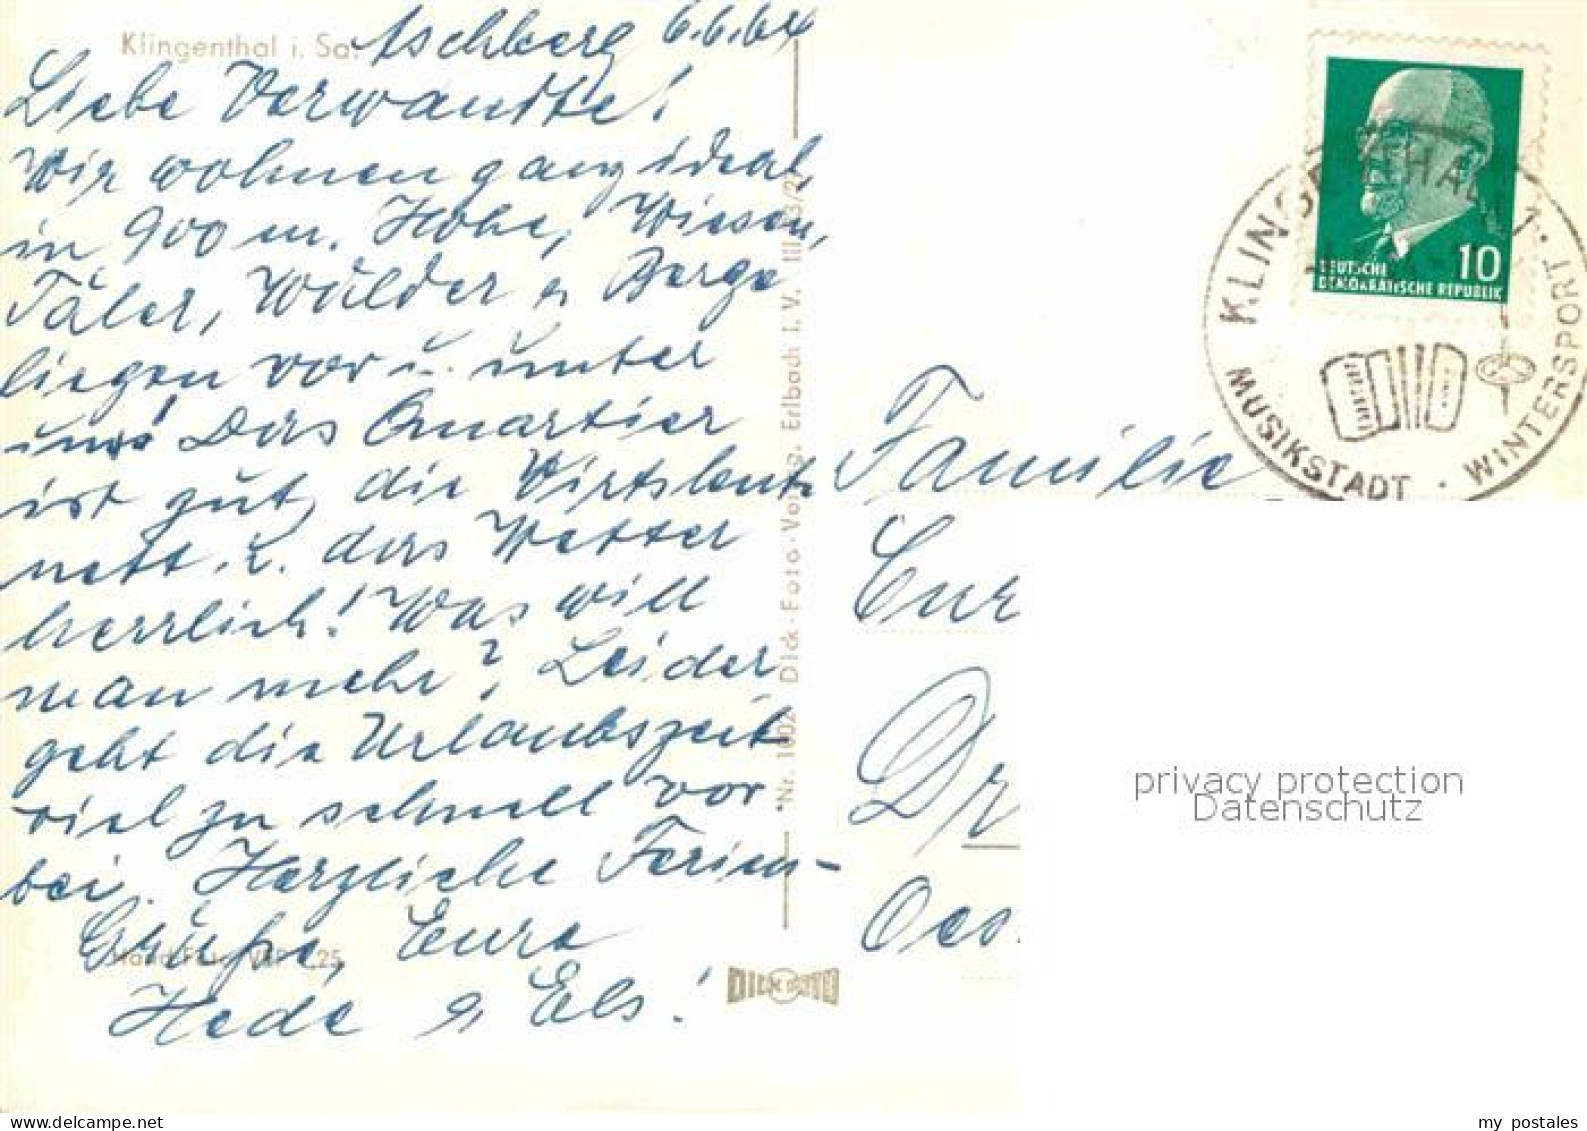 Klingenthal i. Sa.
Aschberg 6.6.64
Liebe Verwandte!
Wir wohnen ganz ideal,
in 900 m. Höhe, Wiesen,
Täler, Wälder u. Berge
liegen vor u. unter
uns! Das Quartier
ist gut, die Wirtsleute
nett u. das Wetter
herrlich! Was will
man mehr? Leider
geht die Urlaubszeit
viel zu schnell vor
bei. Herzliche Ferien-
Grüße, Eure
Hede u. Els!
VEP 0,25
*Nr. 1002 Dick-Foto-Verlag, Erlbach i. V. III
DICK FOTO
DEUTSCHE
DEMOKRATISCHE REPUBLIK
10
KLINGENTHAL
MUSIKSTADT · WINTERSPORT ·
Familie
Cur
Dr
Oes
privacy protection
Datenschutz
my postales